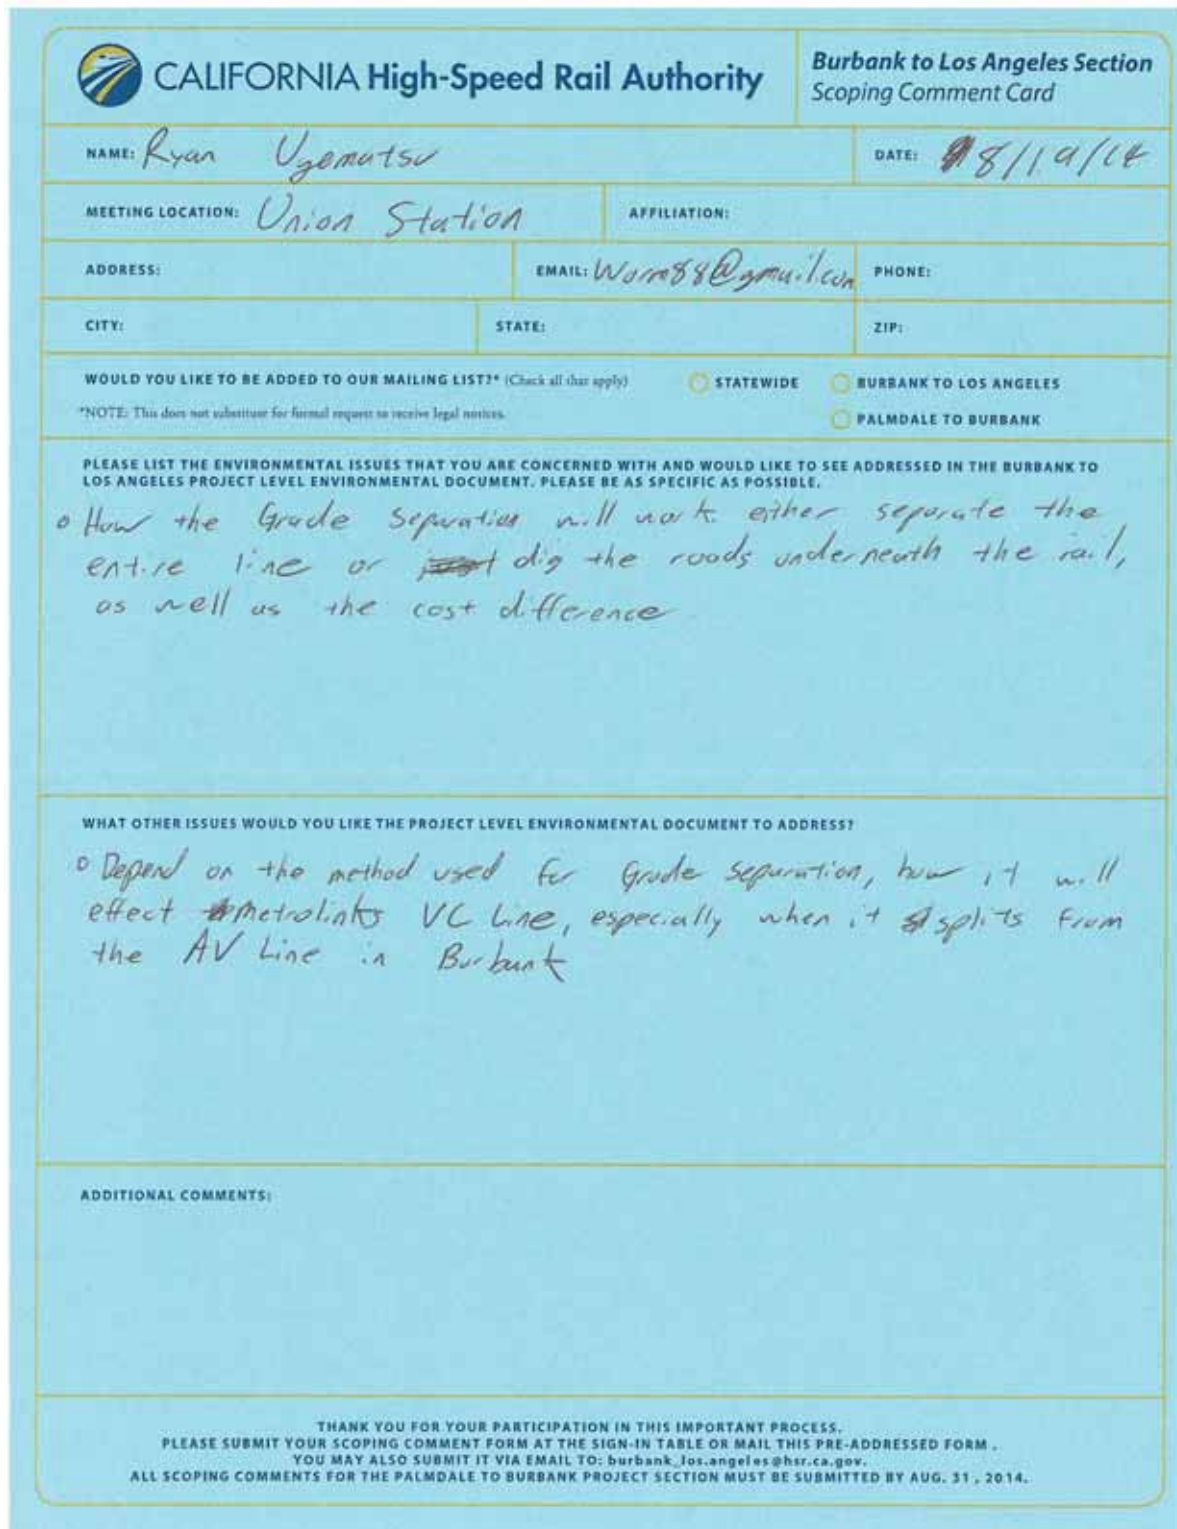 CALIFORNIA High-Speed Rail Authority
Burbank to Los Angeles Section
Scoping Comment Card
NAME: Ryan Uyematsu
DATE: 8/19/14
MEETING LOCATION: Union Station
AFFILIATION:
ADDRESS:
EMAIL: Worm88@gmail.com
PHONE:
CITY:
STATE:
ZIP:
WOULD YOU LIKE TO BE ADDED TO OUR MAILING LIST?* (Check all that apply)
STATEWIDE
BURBANK TO LOS ANGELES
*NOTE: This does not substitute for formal request to receive legal notices.
PALMDALE TO BURBANK
PLEASE LIST THE ENVIRONMENTAL ISSUES THAT YOU ARE CONCERNED WITH AND WOULD LIKE TO SEE ADDRESSED IN THE BURBANK TO
LOS ANGELES PROJECT LEVEL ENVIRONMENTAL DOCUMENT. PLEASE BE AS SPECIFIC AS POSSIBLE.
How the Grade Separation will work either separate the
entire line or dig the roads underneath the rail,
as well as the cost difference
WHAT OTHER ISSUES WOULD YOU LIKE THE PROJECT LEVEL ENVIRONMENTAL DOCUMENT TO ADDRESS?
Depend on the method used for Grade separation, how it will
effect Metrolinks VC Line, especially when it splits from
the AV Line in Burbank
ADDITIONAL COMMENTS:
THANK YOU FOR YOUR PARTICIPATION IN THIS IMPORTANT PROCESS.
PLEASE SUBMIT YOUR SCOPING COMMENT FORM AT THE SIGN-IN TABLE OR MAIL THIS PRE-ADDRESSED FORM .
YOU MAY ALSO SUBMIT IT VIA EMAIL TO: burbank_los.angeles@hsr.ca.gov.
ALL SCOPING COMMENTS FOR THE PALMDALE TO BURBANK PROJECT SECTION MUST BE SUBMITTED BY AUG. 31 , 2014.